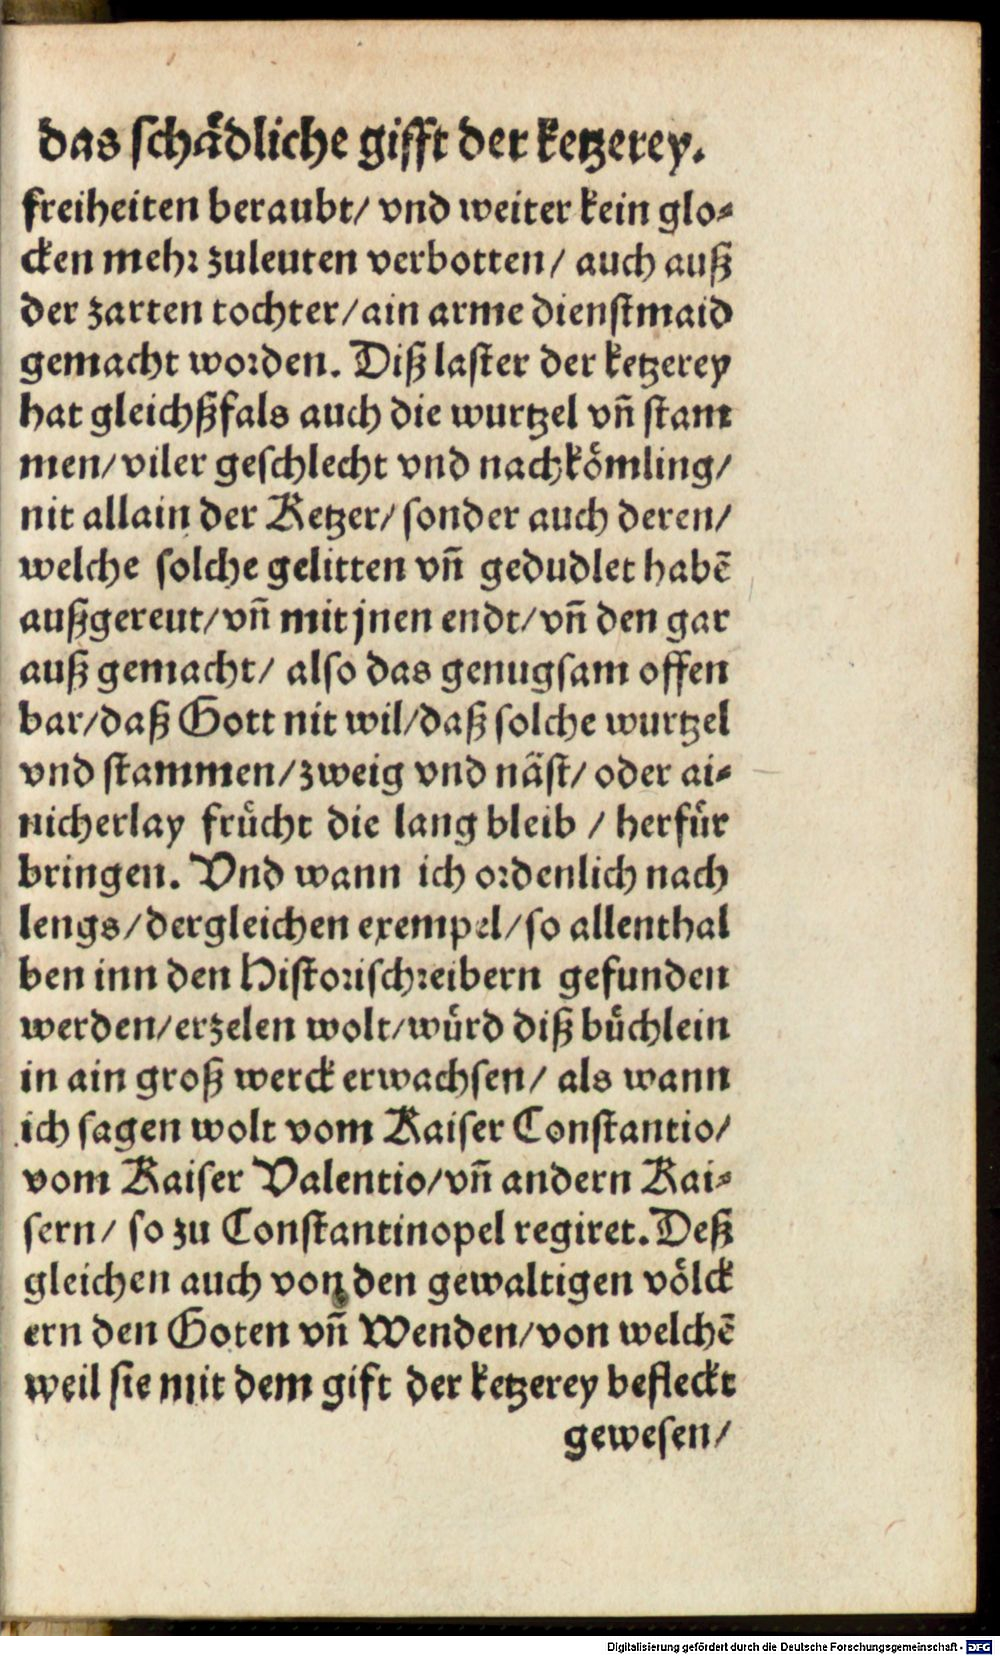 das schådliche gifft der ketzerey.
freiheiten beraubt/ vnd weiter kein glo⸗
cken mehr zuleuten verbotten/ auch auß
der zarten tochter/ain arme dienstmaid
gemacht worden. Diß laster der ketzerey
hat gleichßfals auch die wurtzel vñ stam
men/viler geschlecht vnd nachkömling/
nit allain der Ketzer/ sonder auch deren/
welche solche gelitten vñ gedudlet habē
außgereut/vñ mit jnen endt/vñ den gar
auß gemacht/ also das genugsam offen
bar/daß Gott nit wil/daß solche wurtzel
vnd stammen/zweig vnd näst/ oder ai⸗
nicherlay frücht die lang bleib / herfür
bringen. Vnd wann ich ordenlich nach
lengs/dergleichen exempel/so allenthal
ben inn den Historischreibern gefunden
werden/erzelen wolt/würd diß büchlein
in ain groß werck erwachsen/ als wann
ich sagen wolt vom Kaiser Constantio/
vom Kaiser Valentio/vñ andern Kai⸗
sern/ so zu Constantinopel regiret. Deß
gleichen auch von den gewaltigen völck
ern den Goten vñ Wenden/von welchē
weil sie mit dem gift der ketzerey befleckt
gewesen/
Digitalisierung gefördert durch die Deutsche Forschungsgemeinschaft - DFG